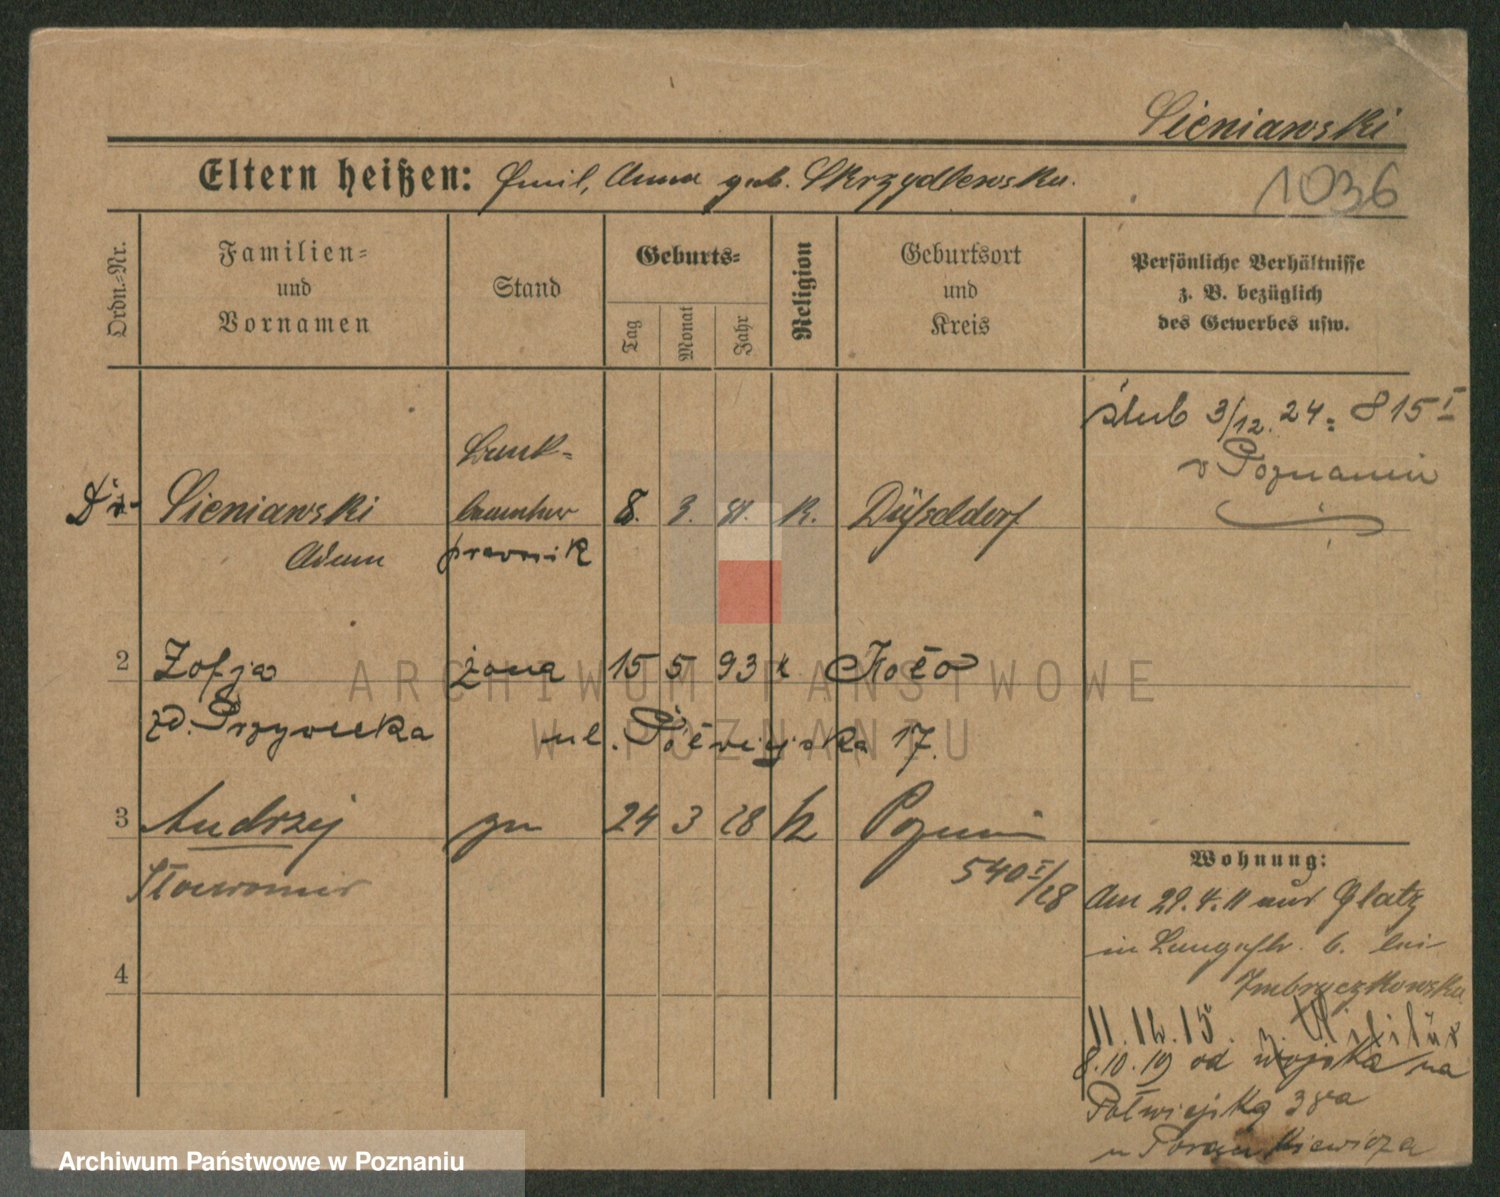 Sieniawski
Eltern heißen: Emil, Anna geb. Skrzydlewska.
1036
Ordn.-Nr.
Familien-
und
Vornamen
Stand
Geburts-
Tag
Monat
Jahr
Religion
Geburtsort
und
Kreis
Persönliche Verhältnisse
z. B. bezüglich
des Gewerbes usw.
ślub 3/12. 24. 815 I
w Poznaniu
Bank-
Dr. Sieniawski beamter 8. 3. 81. k. Düsseldorf
Adam prawnik
2 Zofja żona 15 5 93 k Koło
zd. Przywecka ul. Półwiejska 17.
3 Andrzej syn 24 3 28 k Poznań
Sławomir 540 I/28
4
Wohnung:
Am 29.4.11 aus Glatz
in Langestr. 6. bei
Imbryczkowska
11.12.15. z. Militär
8.10.19 od wojska na
Półwiejską 38a
u Porankiewicza
ARCHIWUM PAŃSTWOWE
W POZNANIU
Archiwum Państwowe w Poznaniu